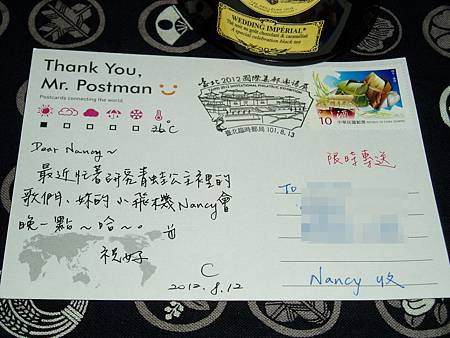 WEDDING IMPÉRIAL
A special celebration black tea
Thank You,
Mr. Postman
Postcards connecting the world
臺北2012國際集郵邀請展
臺北臨時郵局 101.8.13
10
中華民國郵票
26°C
Dear Nancy~
最近忙著研究青蛙公主裡的
歌們、妳的小飛機Nancy會
晚一點~哈~。
祝好
C
2012.8.12
限時專送
To
Nancy 收